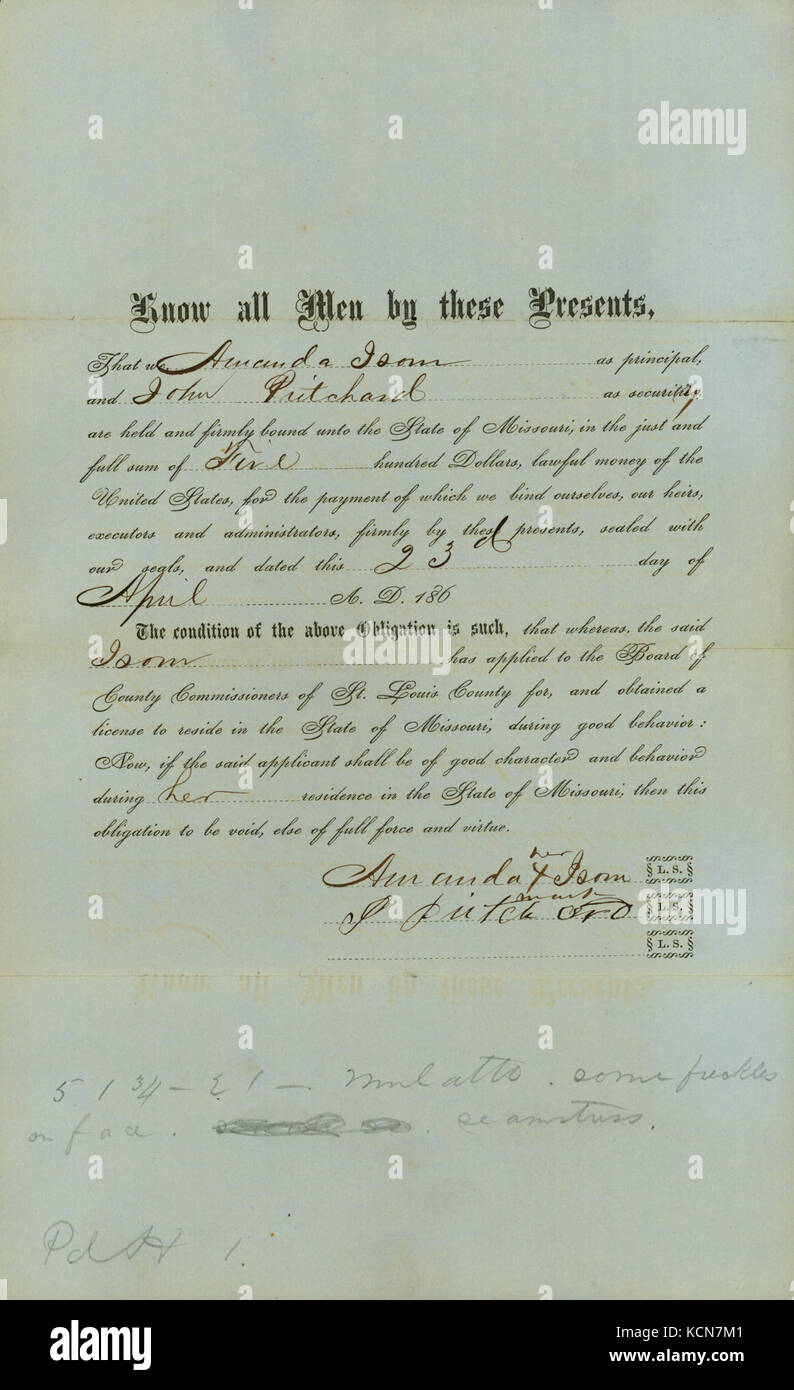 Know all Men by these Presents,
That we Amanda Isom as principal,
and John Pritchard as security
are held and firmly bound unto the State of Missouri, in the just and
full sum of Five hundred Dollars, lawful money of the
United States, for the payment of which we bind ourselves, our heirs,
executors and administrators, firmly by these presents, sealed with
our seals, and dated this 23d day of
April A. D. 186
The condition of the above Obligation is such, that whereas, the said
Isom has applied to the Board of
County Commissioners of St. Louis County for, and obtained a
license to reside in the State of Missouri, during good behavior:
Now, if the said applicant shall be of good character and behavior
during her residence in the State of Missouri, then this
obligation to be void, else of full force and virtue.
her
Amanda X Isom § L. S. §
mark
J Pritchard § L. S. §
§ L. S. §
5 1 3/4 - 21 - Mulatto. some freckles
on face. seamstress.
Pd 1.
alamy
Image ID: KCN7M1
www.alamy.com